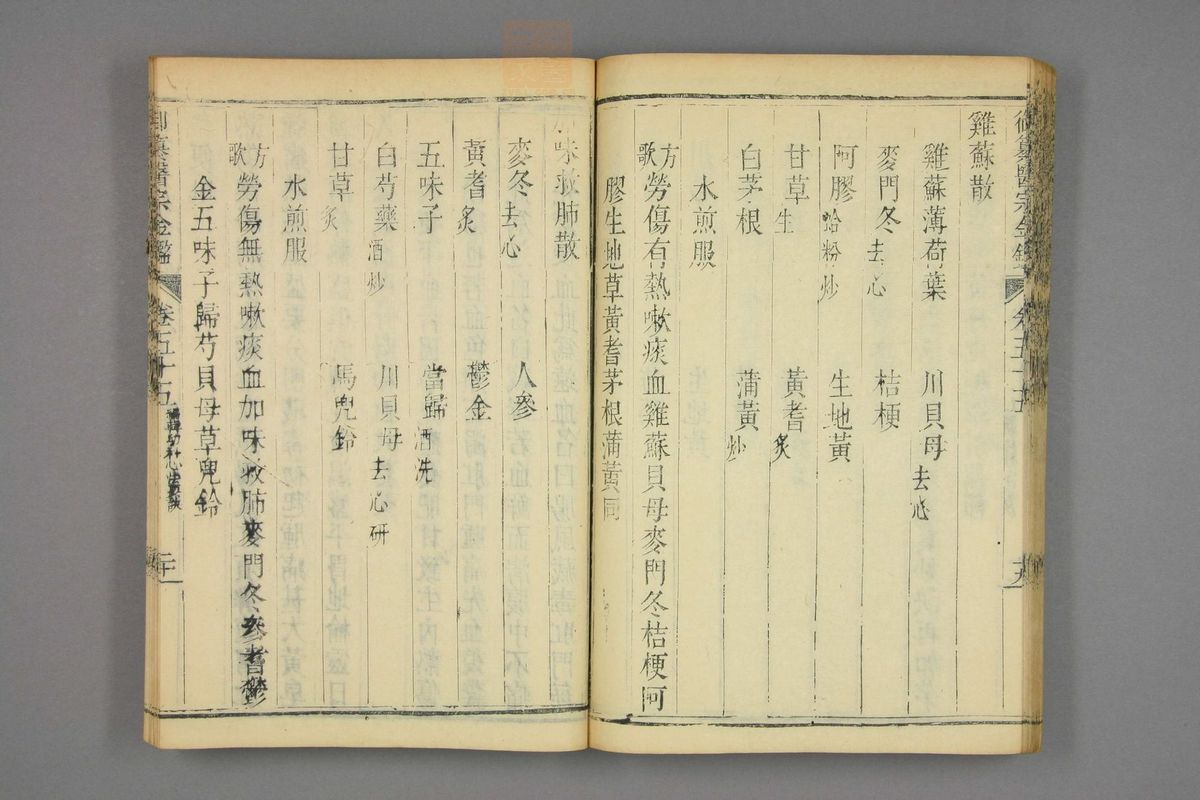 御纂醫宗金鑑 卷五十五 十九
雞蘇散
雞蘇薄荷葉 川貝母去心
麥門冬去心 桔梗
阿膠蛤粉炒 生地黃
甘草生 黃耆炙
白茅根 蒲黃炒
水煎服
方歌 勞傷有熱嗽痰血雞蘇貝母麥門冬桔梗阿
膠生地草黃耆茅根蒲黃同
加味救肺散
麥冬去心 人參
黃耆炙 鬱金
五味子 當歸酒洗
白芍藥酒炒 川貝母去心研
甘草炙 馬兜鈴
水煎服
方歌 勞傷無熱嗽痰血加味救肺麥門冬參耆鬱
金五味子歸芍貝母草兜鈴
御纂醫宗金鑑 卷五十五 幼科心法要訣 二十